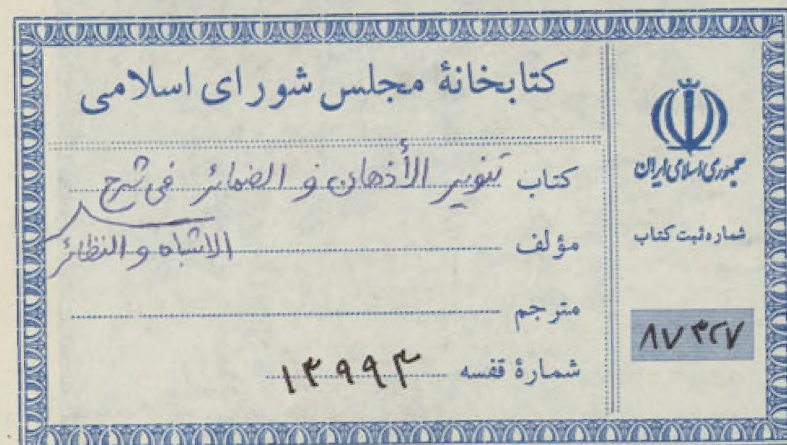 کتابخانهٔ مجلس شورای اسلامی
کتاب تنویر الأذهان و الضمائر فی شرح
الاشباه و النظائر
مؤلف
مترجم
شمارهٔ قفسه ۱۳۹۹۳
جمهوری اسلامی ایران
شماره ثبت کتاب
۸۷۳۲۷